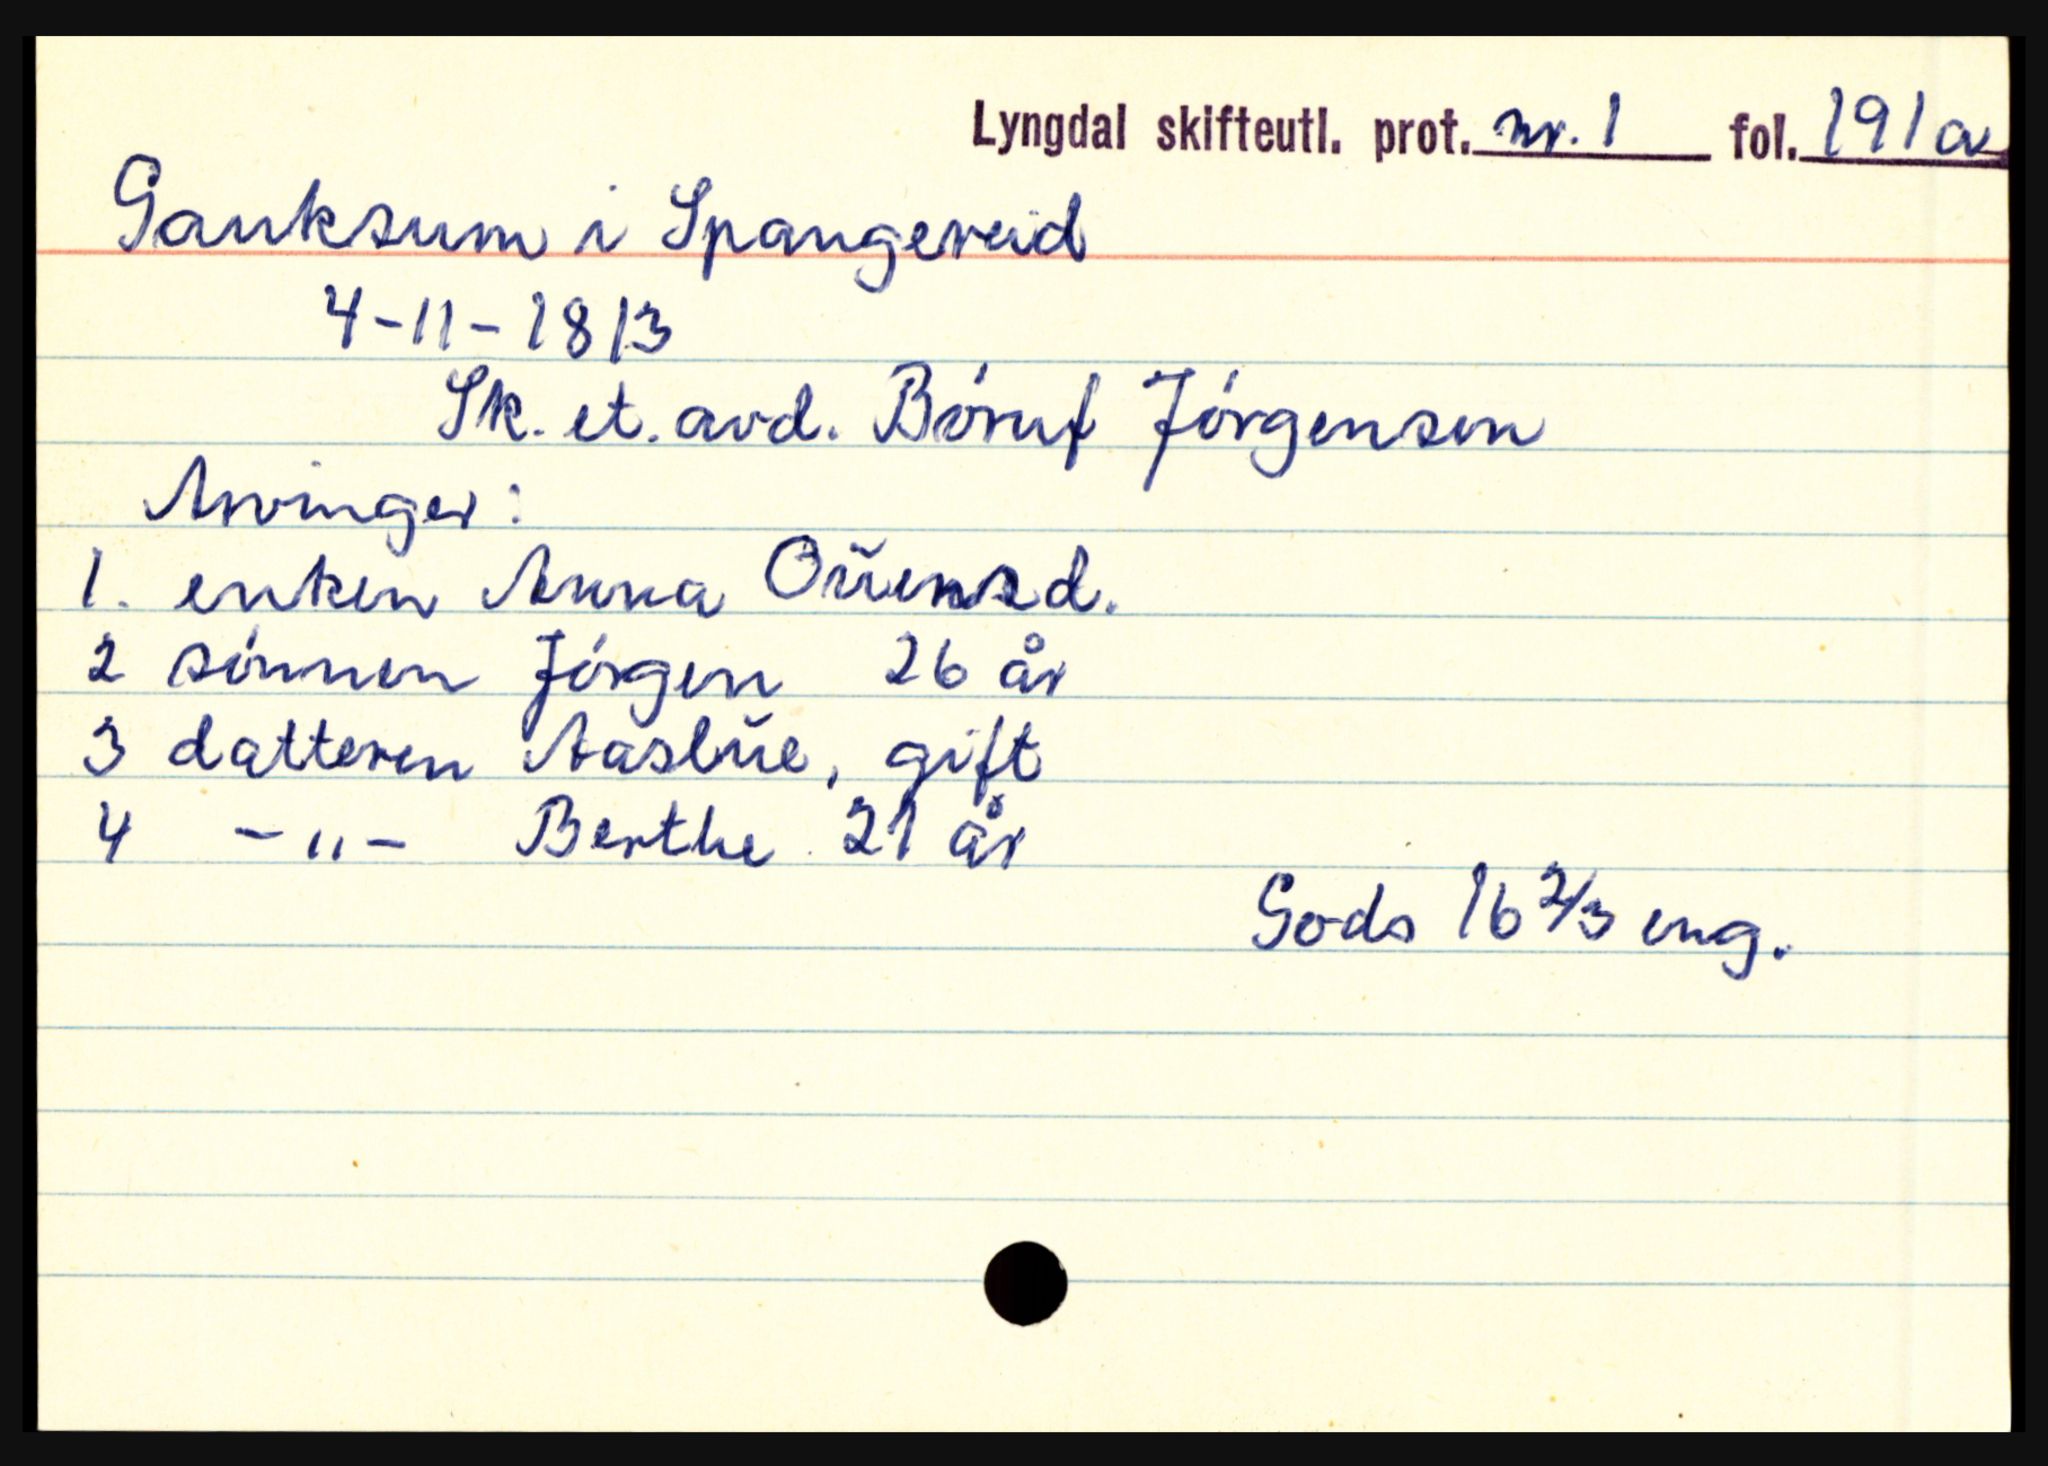 Lyngdal skifteutl. prot. nr. 1 fol. 191a
Gauksum i Spangereid
4-11-1813
Sk. et. avd. Børuf Jørgensen
Arvinger:
1. enken Anna Oŭensd.
2 sønnen Jørgen 26 år
3 datteren Aaslŭe, gift
4 -"- Berthe 21 år
Gods 16 2/3 eng.